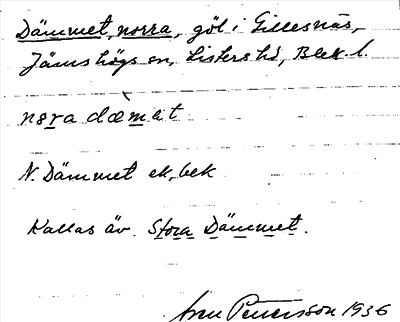 Dämmet, norra, göl i Gillesnäs,
Jämshögs sn, Listers hd, Blek. l.
nora dæmet
N. Dämmet ek, bek
Kallas äv. Stora Dämmet.
Pettersson 1936